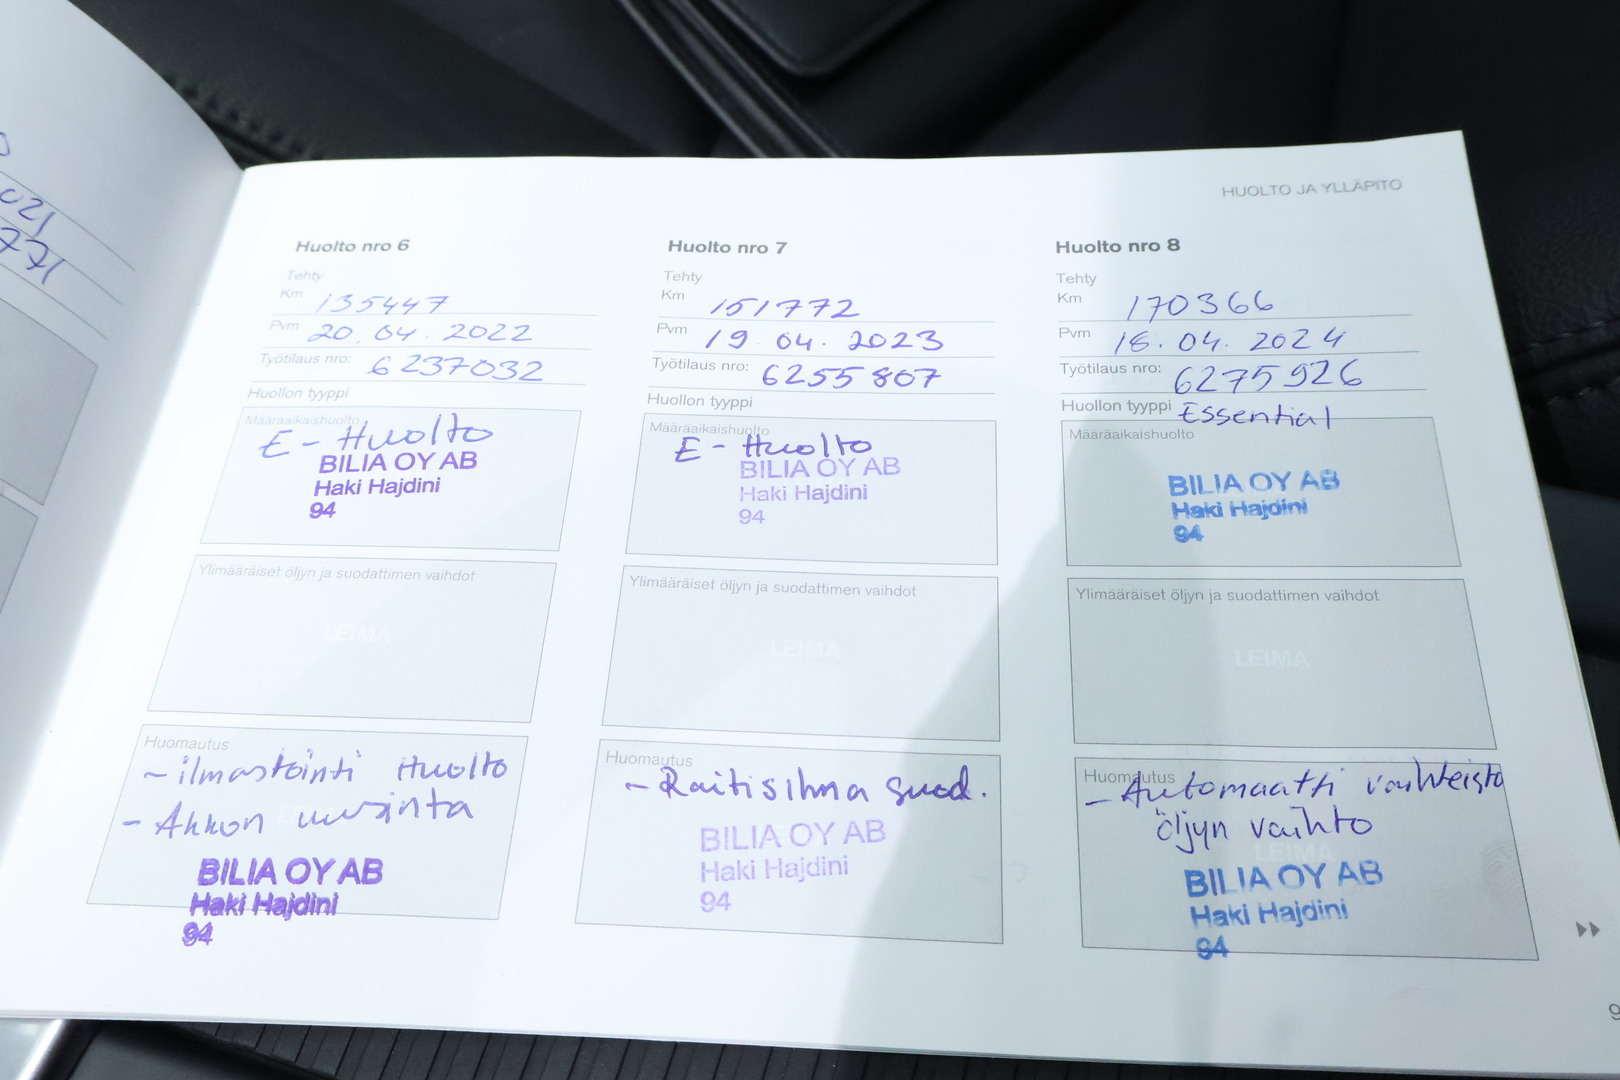 021
771
HUOLTO JA YLLÄPITO
Huolto nro 6
Tehty
Km 135447
Pvm 20.04.2022
Työtilaus nro: 6237032
Huollon tyyppi
Määräaikaishuolto
E - Huolto
BILIA OY AB
Haki Hajdini
94
Ylimääräiset öljyn ja suodattimen vaihdot
LEIMA
Huomautus
- ilmastointi Huolto
- Akkun uusinta
BILIA OY AB
Haki Hajdini
94
Huolto nro 7
Tehty
Km 151772
Pvm 19.04.2023
Työtilaus nro: 6255807
Huollon tyyppi
Määräaikaishuolto
E - Huolto
BILIA OY AB
Haki Hajdini
94
Ylimääräiset öljyn ja suodattimen vaihdot
LEIMA
Huomautus
- Raitisilma suod.
BILIA OY AB
Haki Hajdini
94
Huolto nro 8
Tehty
Km 170366
Pvm 18.04.2024
Työtilaus nro: 6275926
Huollon tyyppi Essential
Määräaikaishuolto
BILIA OY AB
Haki Hajdini
94
Ylimääräiset öljyn ja suodattimen vaihdot
LEIMA
Huomautus
- Automaatti vaihteisto
öljyn vaihto
LEIMA
BILIA OY AB
Haki Hajdini
94
9